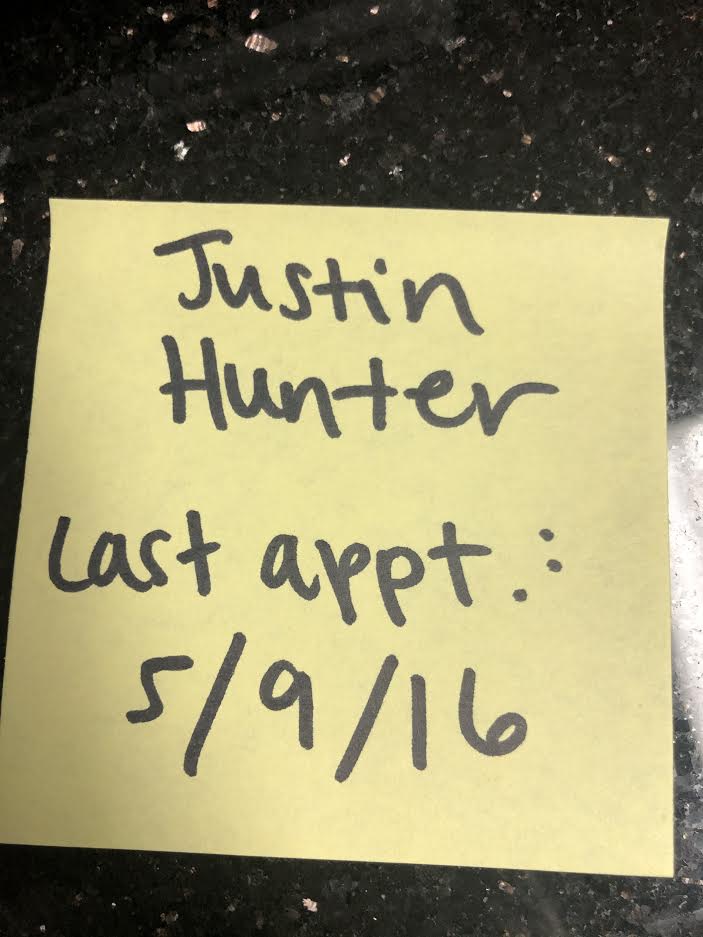 Justin
Hunter
Last appt.:
5/9/16